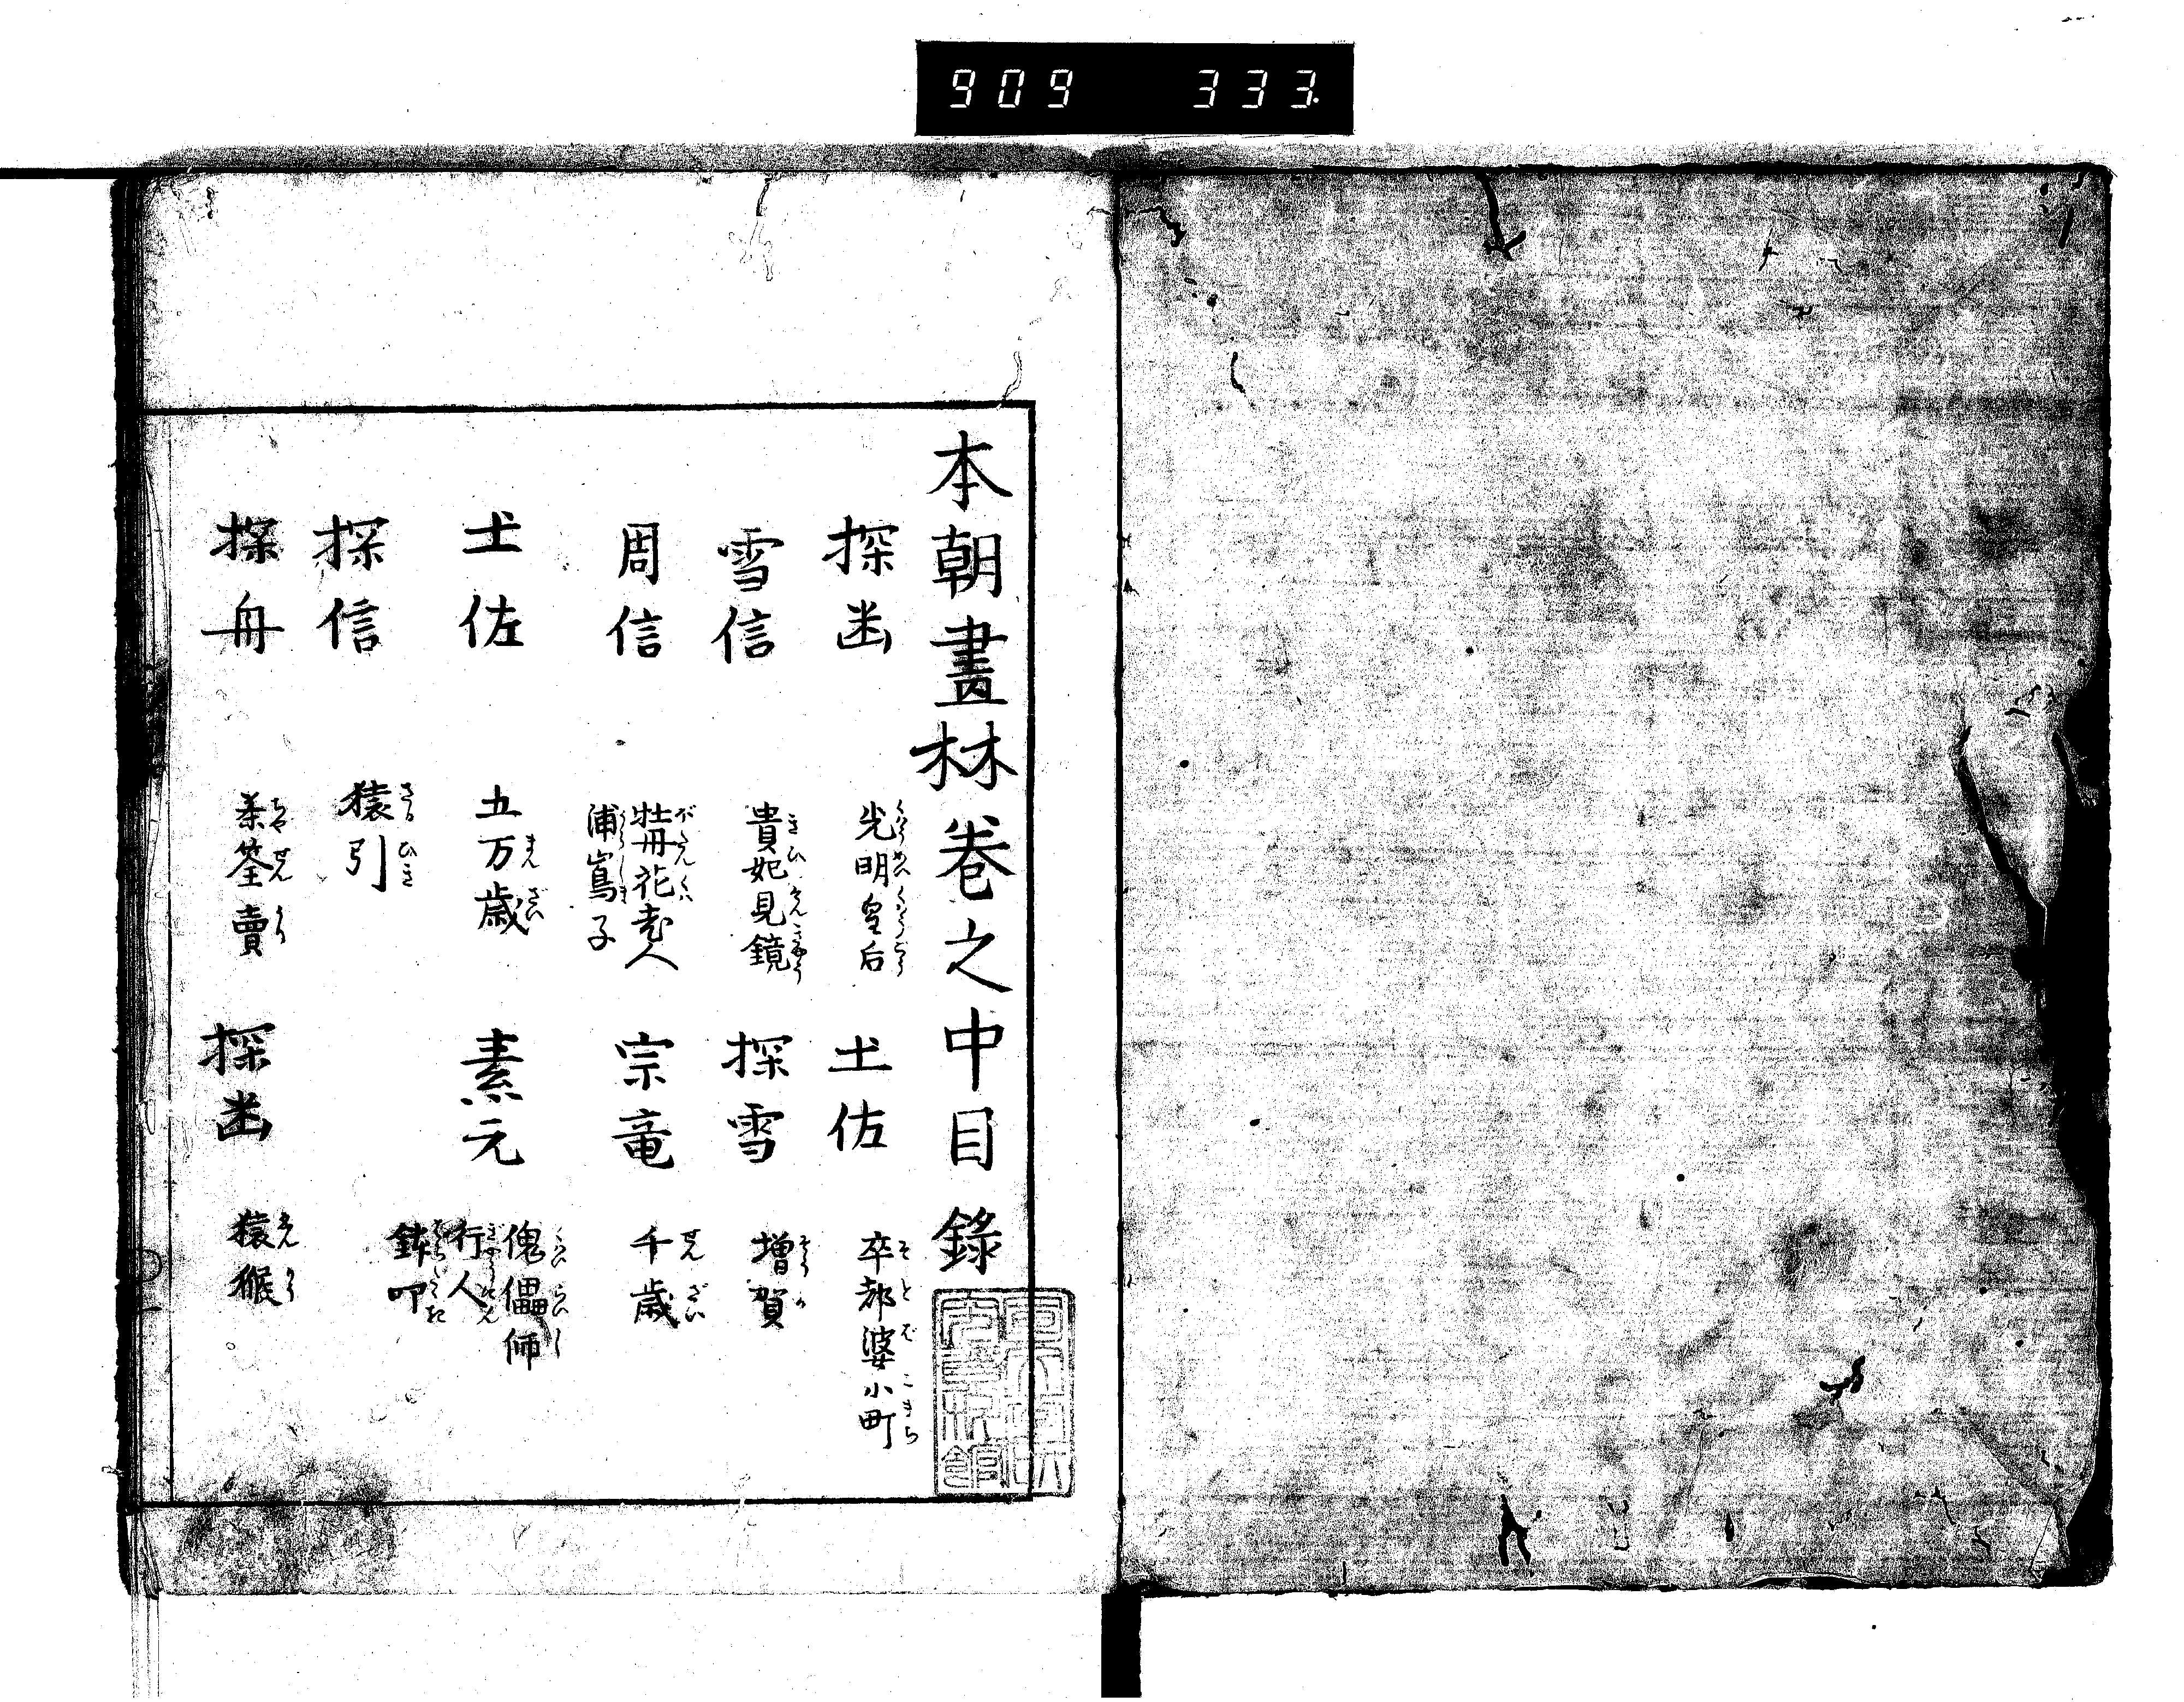 909 333
本朝畫林巻之中目錄
探幽 光明皇后 土佐 卒都婆小町
雪信 貴妃見鏡 探雪 増賀
周信 牡丹花老人 宗竜 千歳
浦嶌子
土佐 五万歳 素元 傀儡師
行人
探信 猿引 鉢叩
探舟 茶筌賣 探幽 猿猴